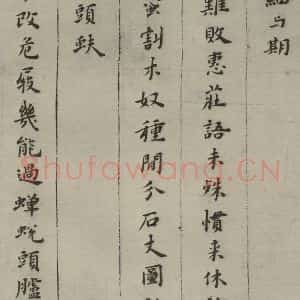 与期
難敗惠莊語未殊慣来休
割木奴種開分石大圖
頭蚨
改危履幾能過蟬蛻頭臚
Shufawang.CN